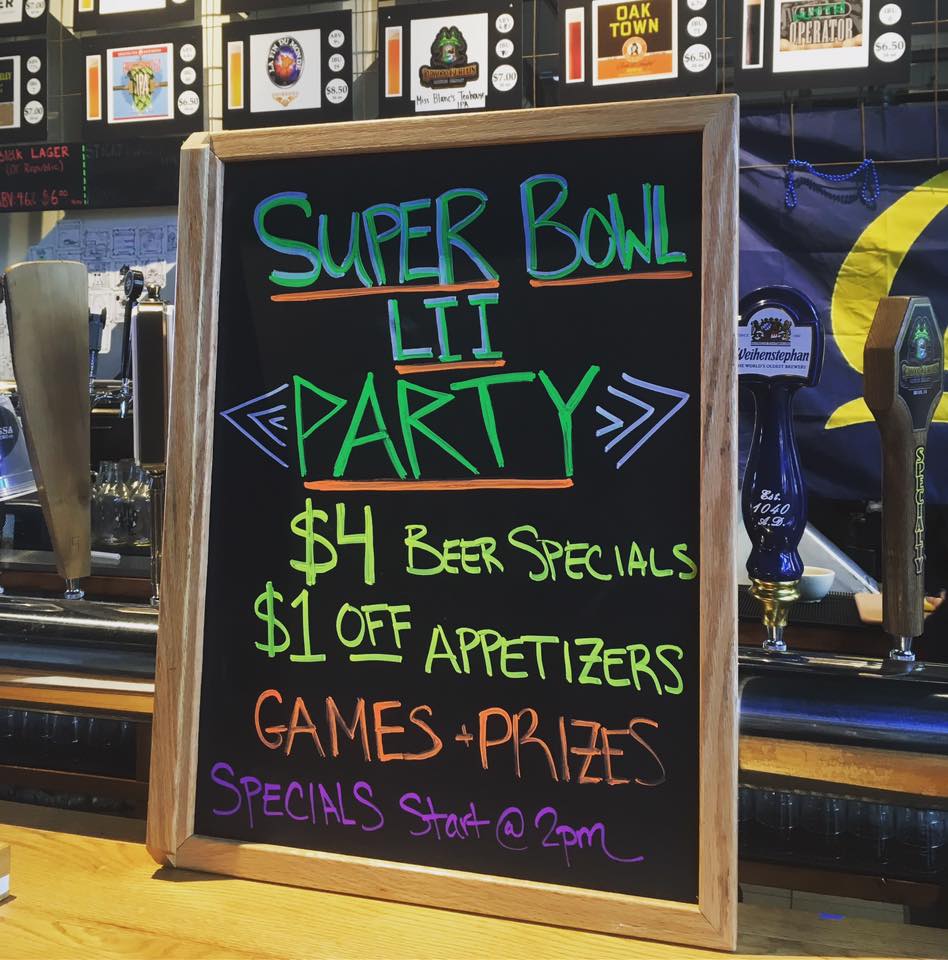 $7.00
$6.50
FIN DU MONDE
$8.50
ABV
IBU
Miss Blanc's Teahouse
IPA
$7.00
OAK
TOWN
$6.50
OPERATOR
$6.50
LAGER
ABV 4.6% $6.00
SUPER BOWL
LII
<<PARTY>>
$4 BEER SPECIALS
$1 OFF APPETIZERS
GAMES + PRIZES
SPECIALS Start @ 2pm
Weihenstephan
THE WORLD'S OLDEST BREWERY
Est.
1040
A.D.
SPECIALTY